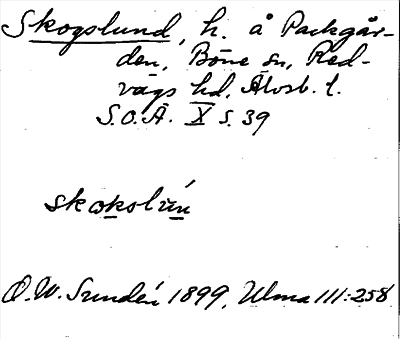 Skogslund, h. å Packgår-
den, Böne sn, Red-
vägs hd, Älvsb. l.
S.O.Ä. X s. 39
skokslún
O.W. Sundén 1899, Ulma 111:258